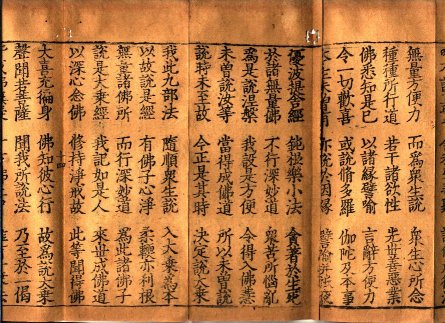 無量方便力 而為眾生說 眾生心所念
種種所行道 若干諸欲性 先世善惡業
佛悉知是已 以諸緣譬喻 言辭方便力
令一切歡喜 或說修多羅 伽陀及本事
本生未曾有 亦說於因緣 譬喻并祇夜
優波提舍經 鈍根樂小法 貪著於生死
於諸無量佛 不行深妙道 眾苦所惱亂
為是說涅槃 我設是方便 令得入佛慧
未曾說汝等 當得成佛道 所以未曾說
說時未至故 今正是其時 決定說大乘
我此九部法 隨順眾生說 入大乘為本
以故說是經 有佛子心淨 柔輭亦利根
無量諸佛所 而行深妙道 為此諸佛子
說是大乘經 我記如是人 來世成佛道
以深心念佛 修持淨戒故 此等聞得佛
十四
大喜充徧身 佛知彼心行 故為說大乘
聲聞若菩薩 聞我所說法 乃至於一偈